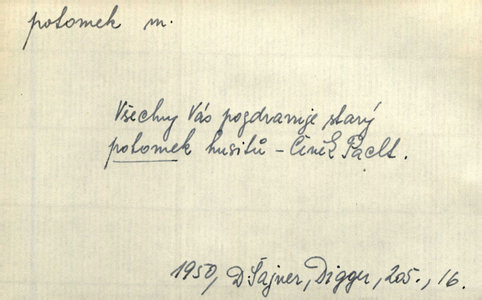 potomek m.
Všechny Vás pozdravuje starý
potomek husitů - Čeněk Paclt.
1950, D. Šajner, Digger, 205., 16.